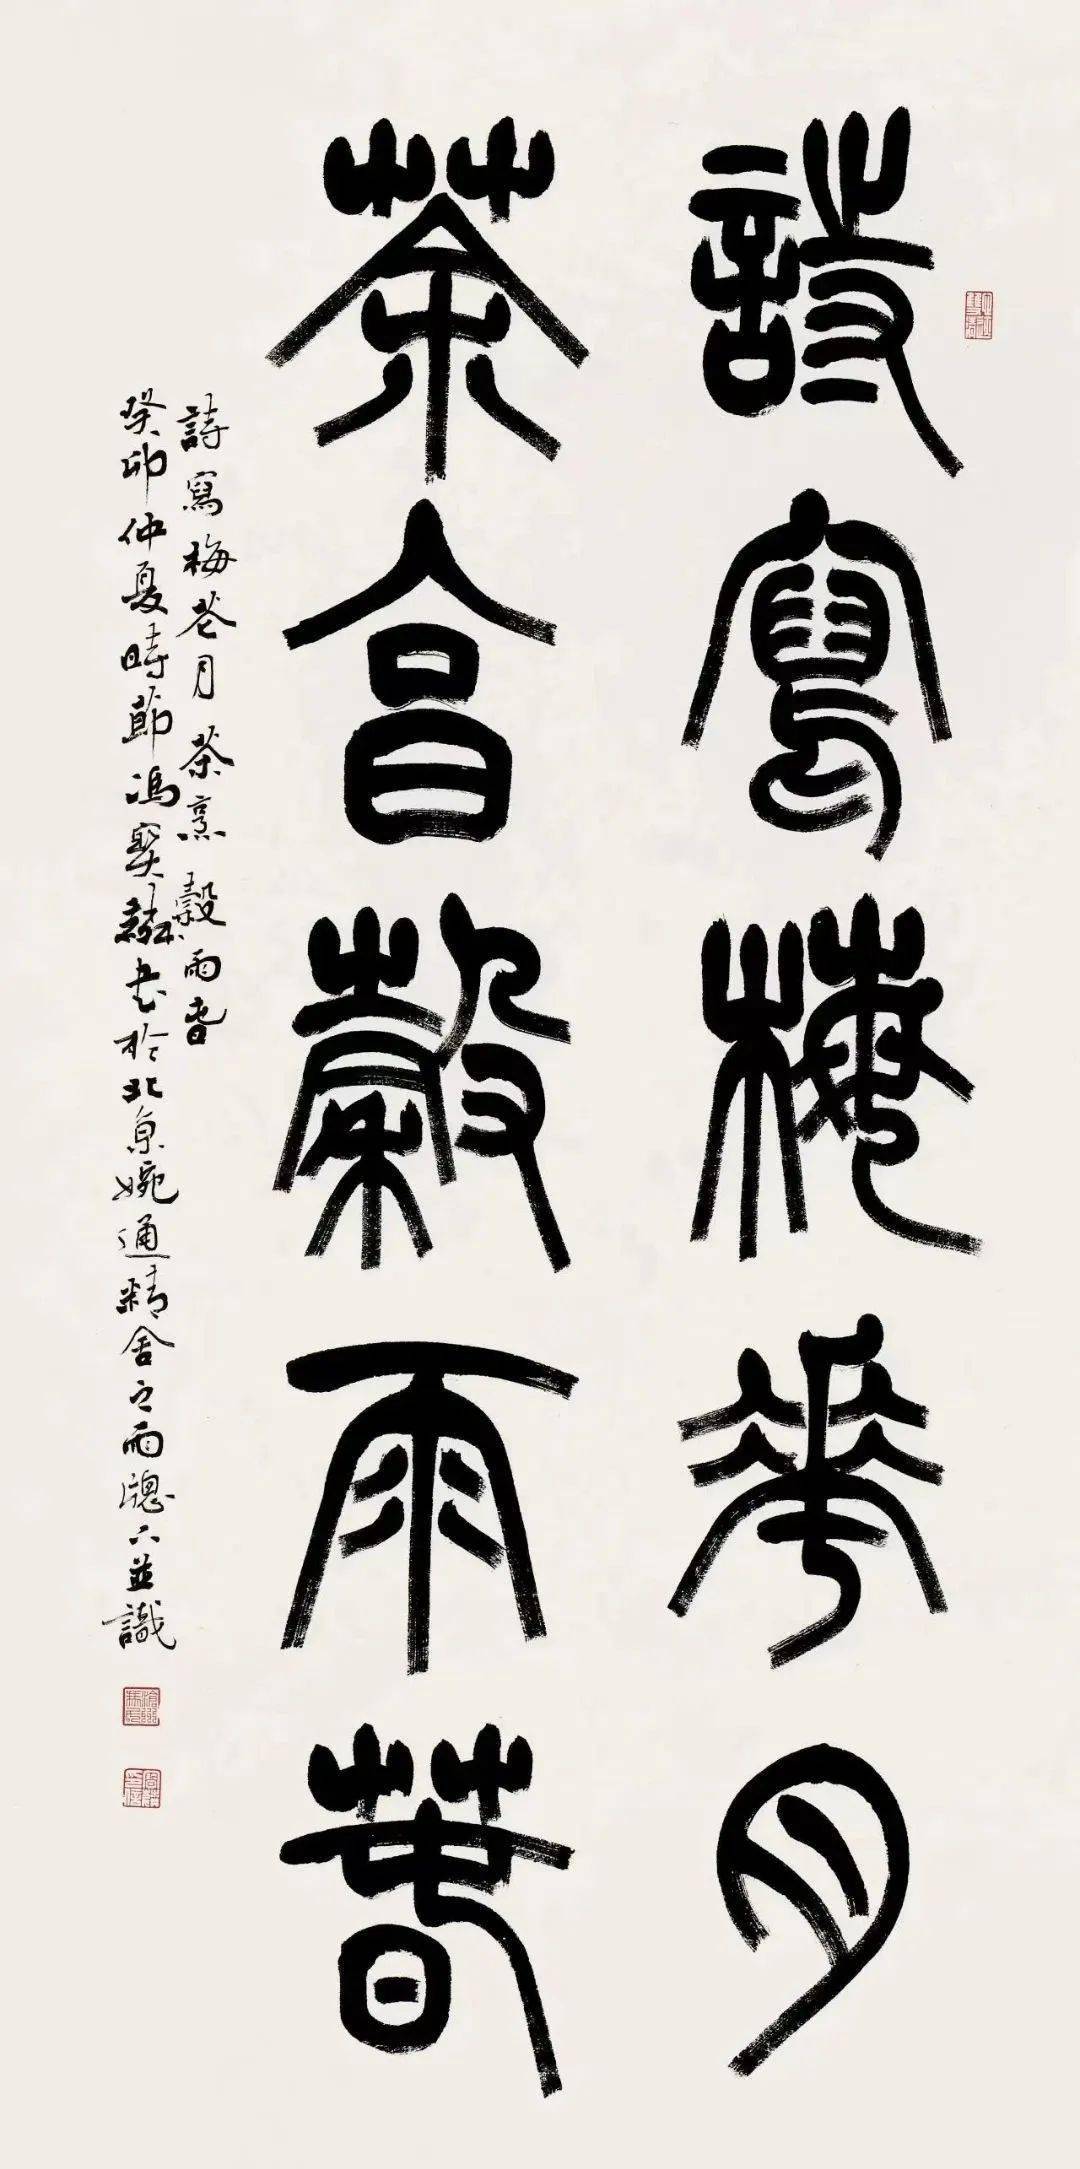 詩寫梅華月
茶亯穀雨萅
詩寫梅花月茶烹穀雨春
癸卯仲夏時節馮寶麟書於北京婉通精舍之雨牕下並識